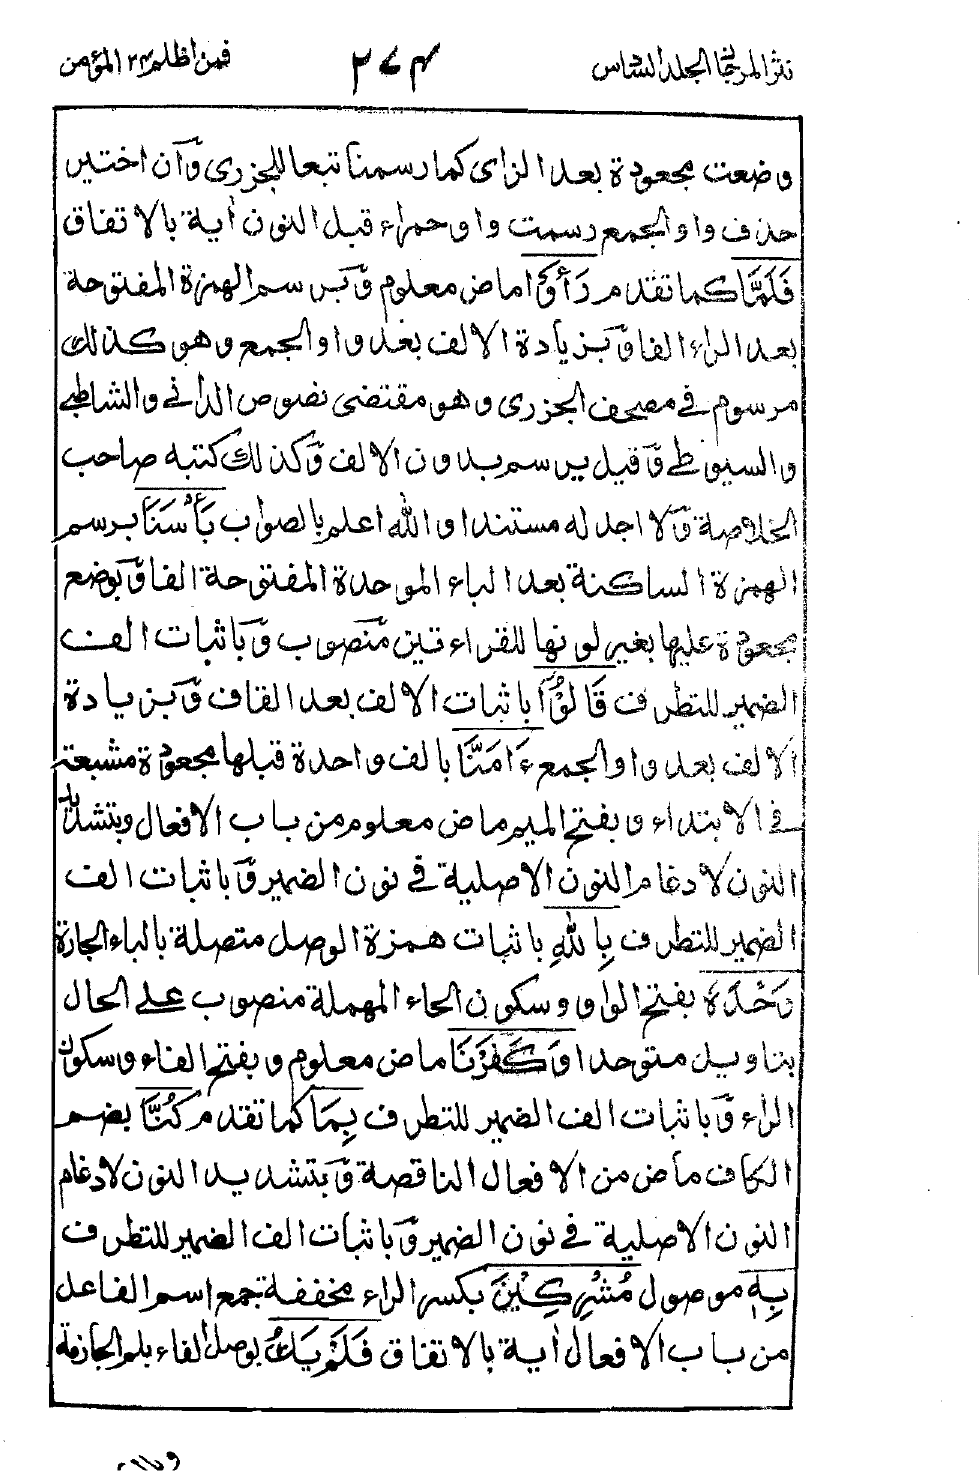 نثر المرجان الجلد السادس ٢٧٤ فمن اظلم ٢٤ المؤمن
وضعت مجعودة بعد الزاى كما رسمنا تبعا للجزرى وَآن اختير
حذف واو الجمع رسمت واو حمراء قبل النون أية بالاتفاق
فَلَمَّا كما تقدم رَأَوْا ماض معلوم وَبرسم الهمزة المفتوحة
بعد الراء الفا وَبزيادة الالف بعد واو الجمع وهو كذلك
مرسوم فى مصحف الجزرى وهو مقتضى نصوص الدانى والشاطبى
والسيوطى وَقيل يرسم بدون الالف وَكذلك كتبه صاحب
الخلاصة وَلا اجد له مستندا والله اعلم بالصواب بَأْسَنَا برسم
الهمزة الساكنة بعد الباء الموحدة المفتوحة الفا وَبوضع
مجعودة عليها بغير لونها للقراءتين مَنصوب وَباثبات الف
الضمير للتطرف قَالُوْا باثبات الالف بعد القاف وَبزيادة
الالف بعد واو الجمع ءَامَنَّا بالف واحدة قبلها مجعودة مشبعة
فى الابتداء وبفتح الميم ماض معلوم من باب الافعال وبتشديد
النون لادغام النون الاصلية فى نون الضمير وَباثبات الف
الضمير للتطرف بِاللهِ باثبات همزة الوصل متصلة بالباء الجارة
وَحْدَهٗ بفتح الواو وسكون الحاء المهملة منصوب على الحال
بتاويل متوحدا وَكَفَرْنَا ماض معلوم وبفتح الفاء وسكون
الراء وَباثبات الف الضمير للتطرف بِمَا كما تقدم كُنَّا بضم
الكاف ماض من الافعال الناقصة وَبتشديد النون لادغام
النون الاصلية فى نون الضمير وَباثبات الف الضمير للتطرف
بِهٖ موصول مُشْرِكِيْنَ بكسر الراء مخففة جمع اسم الفاعل
من باب الافعال أية بالاتفاق فَلَمْ يَكُ بوصل الفاء بلم الجازمة